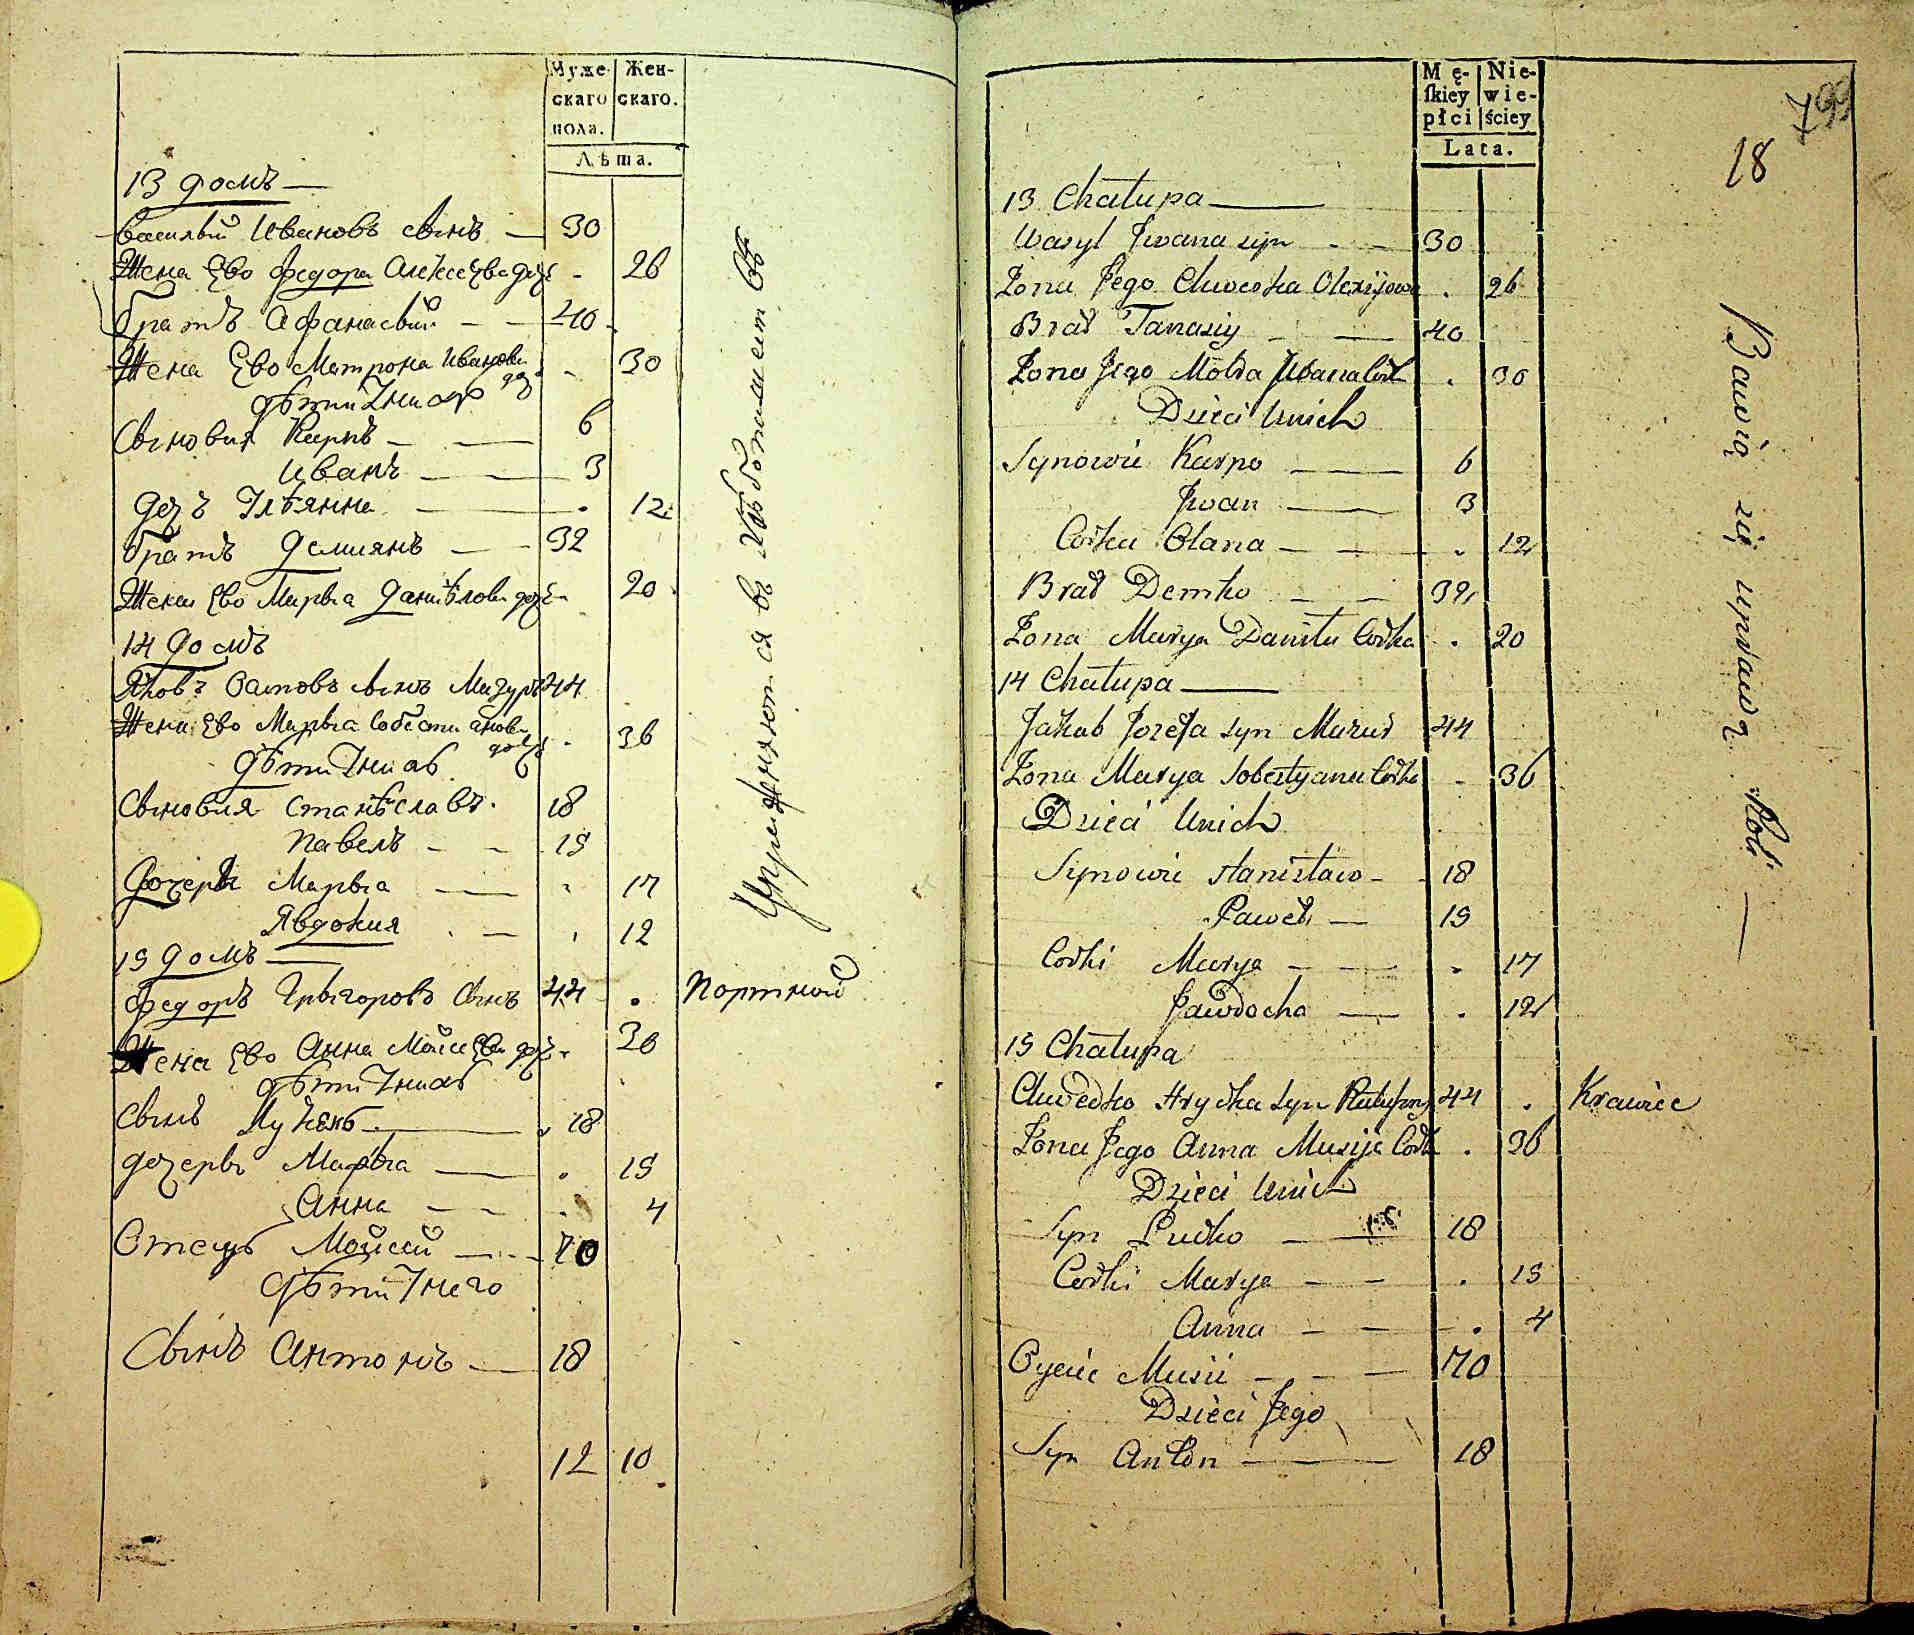 Муже-
скаго
пола.
Жен-
скаго.
Лѣта.
13 домъ
Василий Ивановъ сынъ 30
Жена Ево Федора Алексеева доч 26
братъ Афанасий 40
Жена Ево Матрона Иванова доч 30
дѣти У них
Сыновия Карпъ 6
Иванъ 3
доч Улѣянна 12
братъ Демиянъ 32
Жена Ево Марыа Данѣлова доч 20
14 домъ
Яковъ Осиповъ сынъ Мазуръ 44
Жена Ево Марыа Собестианова доч 36
дѣти У них
Сыновия Станѣславъ 18
Павелъ 15
Дочеры Марыа 17
Явдокия 12
15 домъ
Федоръ Грыгоровъ Сынъ 44 .
Жена Ево Анна Мойсеева доч 36
дѣти У них
Сынъ Луцкъ 18
дочеры Марыа 15
Анна 4
Отецъ Мойсей 70
дѣти У него
Сынъ Антонъ 18
12 10
Упражняются въ Хлѣбопашествѣ
Портной
Mę-
ſkiey
płci
Nie-
wie-
ściey
Lata.
799
18
13 Chałupa
Wasyl Jwana syn 30
Żona Jego Chwedka Olexijowa 26
Brat Tanasiy 40
Żona Jego Motra Jwana Corka 30
Dzieci Unich
Synowie Karpo 6
Jwan 3
Corka Olana 12
Brat Demko 32
Żona Marya Daniła Corka 20
14 Chałupa
Jakub Jozefa syn Mazur 44
Żona Marya Sobestyana Corka 36
Dzieci Unich
Synowie Stanisław 18
Paweł 15
Corki Marya 17
Jawdocha 12
15 Chałupa
Chwedko Hryćka syn 44 .
Krawiec
Żona Jego Anna Musija Corka 36
Dzieci Unich
Syn Lućko 18
Corki Marya 15
Anna 4
Oyciec Musii 70
Dzieci Jego
Syn Anton 18
Bawią się uprawą Roli